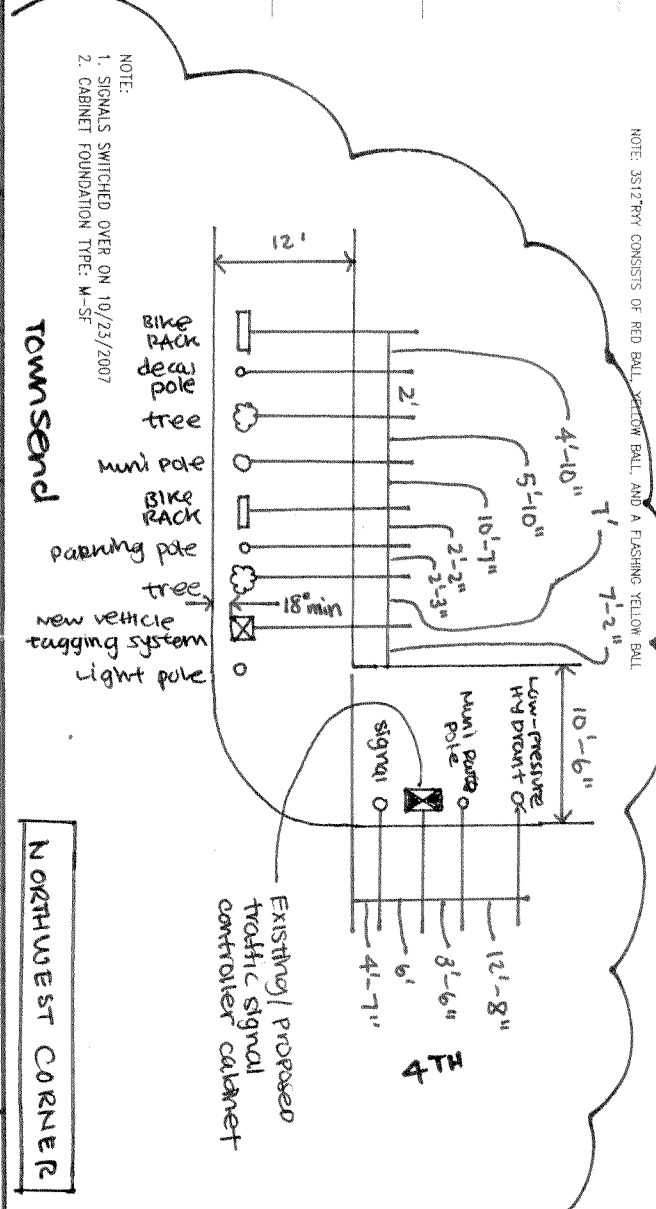 NOTE: 3S12"RYY CONSISTS OF RED BALL, YELLOW BALL, AND A FLASHING YELLOW BALL
NOTE:
1. SIGNALS SWITCHED OVER ON 10/23/2007
2. CABINET FOUNDATION TYPE: M-SF
12'
BIKE
RACK
decal
pole
tree
Muni pole
BIKE
RACK
parking pole
tree
New vehicle
tagging system
Light pole
18" min
2'
4'-10"
5'-10"
10'-7"
2'-2"
2'-3"
7'
7'-2"
10'-6"
Low-pressure
Hydrant
Muni
pole
signal
4'-7"
6'
8'-6"
12'-8"
Existing/proposed
traffic signal
controller cabinet
Townsend
4TH
NORTHWEST CORNER